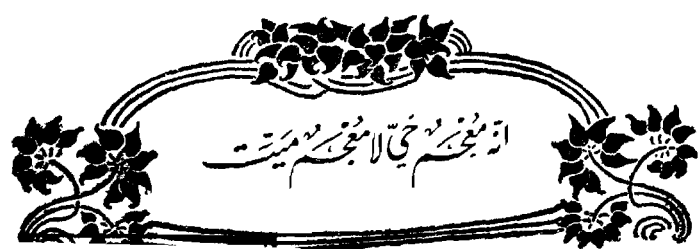 انّه مُعْجَمٌ حَيّ لا مُعْجَمٌ مَيّت